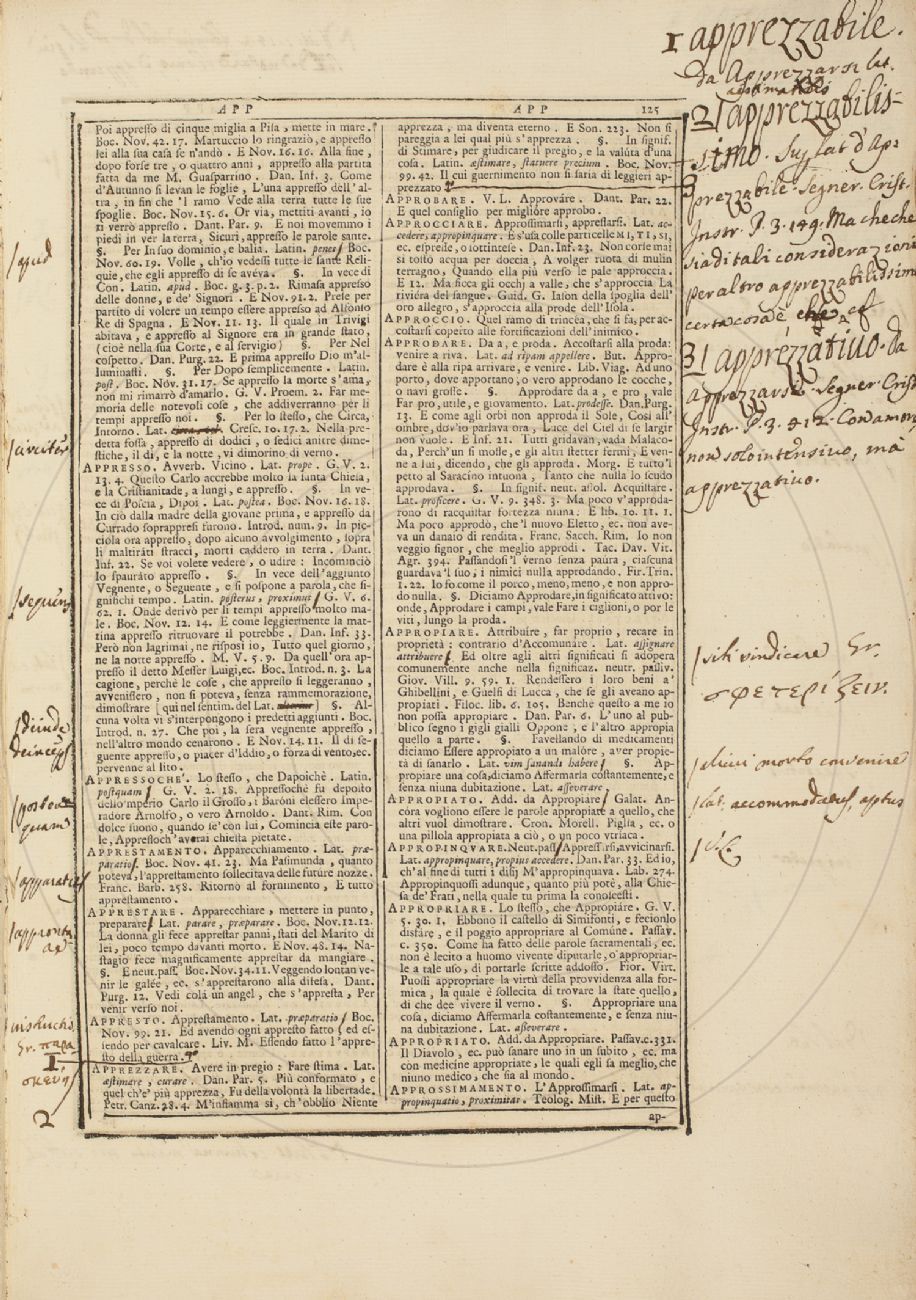 1 apprezzabile.
da Apprezzarsi lat.
aestimandus
2 | apprezzabilis-
simo. Superlat d'Ap-
prezzabile. Segner. Crist.
Instr. P. 3. 149. Ma che che
sia di tali considerazioni
per altro apprezzabilissime
certa cosa è, che, ef
3 | apprezzativo. da
Apprezzarsi. Segner Crist
Instr. P. 3. 8 12. Con amore
non solo intensivo, ma
apprezzativo.
APP
APP 125
Poi appresso di cinque miglia a Pisa, mette in mare.
Boc. Nov. 42. 17. Martuccio lo ringraziò, e appresso
lei alla sua casa se n'andò. E Nov. 16. 16. Alla fine,
dopo forse tre, o quattro anni, appresso alla partita
fatta da me M. Guasparrino. Dan. Inf. 3. Come
d'Autunno si levan le foglie, L'una appresso dell'al-
tra, in fin che 'l ramo Vede alla terra tutte le sue
spoglie. Boc. Nov. 15. 6. Or via, mettiti avanti, io
ti verrò appresso. Dant. Par. 9. E noi movemmo i
piedi in ver la terra, Sicuri, appresso le parole sante.
§. Per In suo dominio, e balia. Latin. penes Boc.
Nov. 60. 19. Volle, ch'io vedessi tutte le sante Reli-
quie, che egli appresso di se avéva. §. In vece di
Con. Latin. apud. Boc. g. 3. p. 2. Rimasa appresso
delle donne, e de' Signori. E Nov. 91. 2. Prese per
partito di volere un tempo essere appresso ad Alfonso
Re di Spagna. E Nov. 11. 13. Il quale in Trivigi
abitava, e appresso al Signore era in grande stato,
(cioè nella sua Corte, e al servigio) §. Per Nel
cospetto. Dan. Purg. 22. E prima appresso Dio m'al-
luminasti. §. Per Dopo semplicemente. Latin.
post. Boc. Nov. 31. 17. Se appresso la morte s'ama,
non mi rimarrò d'amarlo. G. V. Proem. 2. Far me-
moria delle notevoli cose, che addiverranno per li
tempi appresso noi. §. Per lo stesso, che Circa,
Intorno. Lat. Cresc. 10. 17. 2. Nella pre-
detta fossa, appresso di dodici, o sedici anitre dime-
stiche, il dì, e la notte, vi dimorino di verno.
APPRESSO. Avverb. Vicino. Lat. prope. G. V. 2.
13. 4. Questo Carlo accrebbe molto la santa Chiesa,
e la Cristianitade, a lungi, e appresso. §. In ve-
ce di Poscia, Dipoi. Lat. postea. Boc. Nov. 16. 18.
In ciò dalla madre della giovane prima, e appresso da
Currado soprappresi furono. Introd. num. 9. In pic-
ciola ora appresso, dopo alcuno avvolgimento, sopra
li maltirati stracci, morti caddero in terra. Dant.
Inf. 22. Se voi volete vedere, o udire: Incominciò
lo spaurato appresso. §. In vece dell'aggiunto
Vegnente, o Seguente, e si pospone a parola, che si-
gnifichi tempo. Latin. posterus, proximus G. V. 6.
62. 1. Onde derivò per li tempi appresso molto ma-
le. Boc. Nov. 12. 14. E come leggiermente la mat-
tina appresso ritruovare il potrebbe. Dan. Inf. 33.
Però non lagrimai, ne risposi io, Tutto quel giorno,
ne la notte appresso. M. V. 5. 9. Da quell'ora ap-
presso il detto Messer Luigi, ec. Boc. Introd. n. 3. La
cagione, perchè le cose, che appresso si leggeranno,
avvenissero, non si poteva, senza rammemorazione,
dimostrare [qui nel sentim. del Lat. §. Al-
cuna volta vi s'interpongono i predetti aggiunti. Boc.
Introd. n. 27. Che poi, la sera vegnente appresso,
nell'altro mondo cenarono. E Nov. 14. 11. Il dì se-
guente appresso, o piacer d'Iddio, o forza di vento, ec.
pervenne al lito.
APPRESSOCHE'. Lo stesso, che Dapoichè. Latin.
postquam G. V. 2. 18. Appressochè fu deposto
dello'mperio Carlo il Grosso, i Baróni elessero Impe-
radore Arnolfo, o vero Arnoldo. Dant. Rim. Con
dolce suono, quando se' con lui, Comincia este paro-
le, Appressoch' averai chiesta pietate.
APPRESTAMENTO. Apparecchiamento. Lat. præ-
paratios. Boc. Nov. 41. 23. Ma Pasimunda, quanto
poteva, l'apprestamento sollecitava delle future nozze.
Franc. Barb. 258. Ritorno al fornimento, E tutto
apprestamento.
APPRESTARE. Apparecchiare, mettere in punto,
preparare Lat. parare, præparare. Boc. Nov. 12. 12.
La donna gli fece apprestar panni, stati del Marito di
lei, poco tempo davanti morto. E Nov. 48. 14. Na-
stagio fece magnificamente apprestar da mangiare.
§. E neut. pass. Boc. Nov. 34. 11. Veggendo lontan ve-
nir le galée, ec. s'apprestarono alla difesa. Dant.
Purg. 12. Vedi colà un angel, che s'appresta, Per
venir verso noi.
APPRESTO. Apprestamento. Lat. præparatio Boc.
Nov. 99. 21. Ed avendo ogni appresto fatto ed es-
sendo per cavalcare. Liv. M. Essendo fatto l'appre-
sto della guerra.
APPREZZARE. Avere in pregio: Fare stima. Lat.
æstimare, curare. Dan. Par. 5. Più conformato, e
quel ch'e' più apprezza, Fu della volontà la libertade.
Petr. Canz. 28. 4. M'infiamma sì, ch'obblio Niente
apprezza, ma diventa eterno. E Son. 223. Non si
pareggia a lei qual più s'apprezza. §. In signif.
di Stimare, per giudicare il pregio, e la valuta d'una
cosa. Latin. æstimare, statuere precium. Boc. Nov.
99. 42. Il cui guernimento non si saria di leggieri ap-
prezzato
APPROBARE. V. L. Approváre. Dant. Par. 22.
E quel consiglio per migliore approbo.
APPROCCIARE. Approssimarsi, appressarsi. Lat. ac-
cedere, appropinquare. E s'usa colle particelle MI, TI, SI,
ec. espresse, o sottintese. Dan. Inf. 23. Non corse mai
sì tosto acqua per doccia, A volger ruota di mulin
terragno, Quando ella più verso le pale approccia.
E 12. Ma ficca gli occhj a valle, che s'approccia La
riviéra del sangue. Guid. G. Iason della spoglia dell'
oro allegro, s'approccia alla prode dell'Isola.
APPROCCIO. Quel ramo di trincéa, che si fa, per ac-
costarsi coperto alle fortificazioni dell'inimico.
APPRODARE. Da a, e proda. Accostarsi alla proda:
venire a riva. Lat. ad ripam appellere. But. Appro-
dare è alla ripa arrivare, e venire. Lib. Viag. Ad uno
porto, dove apportano, o vero approdano le cocche,
o navi grosse. §. Approdare da a, e pro, vale
Far pro, utile, e giovamento. Lat. prodesse. Dan. Purg.
13. E come agli orbi non approda il Sole, Così all'
ombre, dov'io parlava ora, Luce del Ciel di se largir
non vuole. E Inf. 21. Tutti gridavan, vada Malaco-
da, Perch'un si mosse, e gli altri stetter fermi, E ven-
ne a lui, dicendo, che gli approda. Morg. E tutto 'l
petto al Saracino intuona, Tanto che nulla lo scudo
approdava. §. In signif. neut. assol. Acquistare.
Lat. proficere. G. V. 9. 348. 3. Ma poco v'approda-
rono di racquistar fortezza niuna. E lib. 10. 11. 1.
Ma poco approdò, che 'l nuovo Eletto, ec. non ave-
va un danaio di rendita. Franc. Sacch. Rim. Io non
veggio signor, che meglio approdi. Tac. Dav. Vit.
Agr. 394. Passandosi 'l verno senza paura, ciascuna
guardava 'l suo, i nimici nulla approdando. Fir. Trin.
1. 22. Io fo come il poco, meno, e non appro-
do nulla. §. Diciamo Approdare, in significato attivo:
onde, Approdare i campi, vale Fare i ciglioni, o por le
viti, lungo la proda.
APPROPIARE. Attribuire, far proprio, recare in
proprietà: contrario d'Accommunáre. Lat. assignare
attribuere. Ed oltre agli altri significati si adopera
comunemente anche nella significaz. neutr. passiv.
Giov. Vill. 9. 59. 1. Rendessero i loro beni a'
Ghibellini, e Guelfi di Lucca, che se gli aveano ap-
propiati. Filoc. lib. 6. 105. Benchè questo a me io
non possa appropiare. Dan. Par. 6. L'uno al pub-
blico segno i gigli gialli Oppone, e l'altro appropia
quello a parte. §. Favellando di medicamenti
diciamo Essere appropiato a un malóre, aver proprie-
tà di sanarlo. Lat. vim sanandi habere §. Ap-
propiare una cosa, diciamo Affermarla costantemente, e
senza niuna dubitazione. Lat. asseverare.
APPROPIATO. Add. da Appropiare Galat. An-
córa vogliono essere le parole appropiate a quello, che
altri vuol dimostrare. Cron. Morell. Piglia, ec. o
una pillola appropiata a ciò, o un poco utriaca.
APPROPINQVARE. Neut. pass. Appressarsi, avvicinarsi.
Lat. appropinquare, propius accedere. Dan. Par. 33. Ed io,
ch'al fine di tutti i disj M'appropinquava. Lab. 274.
Appropinquossi adunque, quanto più potè, alla Chie-
sa de' Frati, nella quale tu prima la conoscesti.
APPROPRIARE. Lo stesso, che Appropiáre. G. V.
5. 30. 1. Ebbono il castello di Simifonti, e fecionlo
disfare, e il poggio appropriare al Comúne. Passav.
c. 350. Come ha fatto delle parole sacramentali, ec.
non è lecito a huomo vivente diputarle, o appropriar-
le a tale uso, di portarle scritte addosso. Fior. Virt.
Puossi appropriare la virtù della provvidenza alla for-
mica, la quale è sollecita di trovare la state quello,
di che dee vivere il verno. §. Appropriare una
cosa, diciamo Affermarla costantemente, e senza niu-
na dubitazione. Lat. asseverare.
APPROPRIATO. Add. da Appropriare. Passav. c. 331.
Il Diavolo, ec. può sanare uno in un subito, ec. ma
con medicine appropriate, le quali egli sa meglio, che
niuno medico, che sia al mondo.
APPROSSIMAMENTO. L'Approssimarsi. Lat. ap-
propinquatio, proximitas. Teolog. Mist. E per questo
ap-
apud
circiter
sequens
deinde
deinceps
posteaquam
apparatus
παρα
1.
σκευη
2
sibi vindicare Gr.
σφετερίζειν.
alicui morbo convenire
lat. accommodatus, aptus